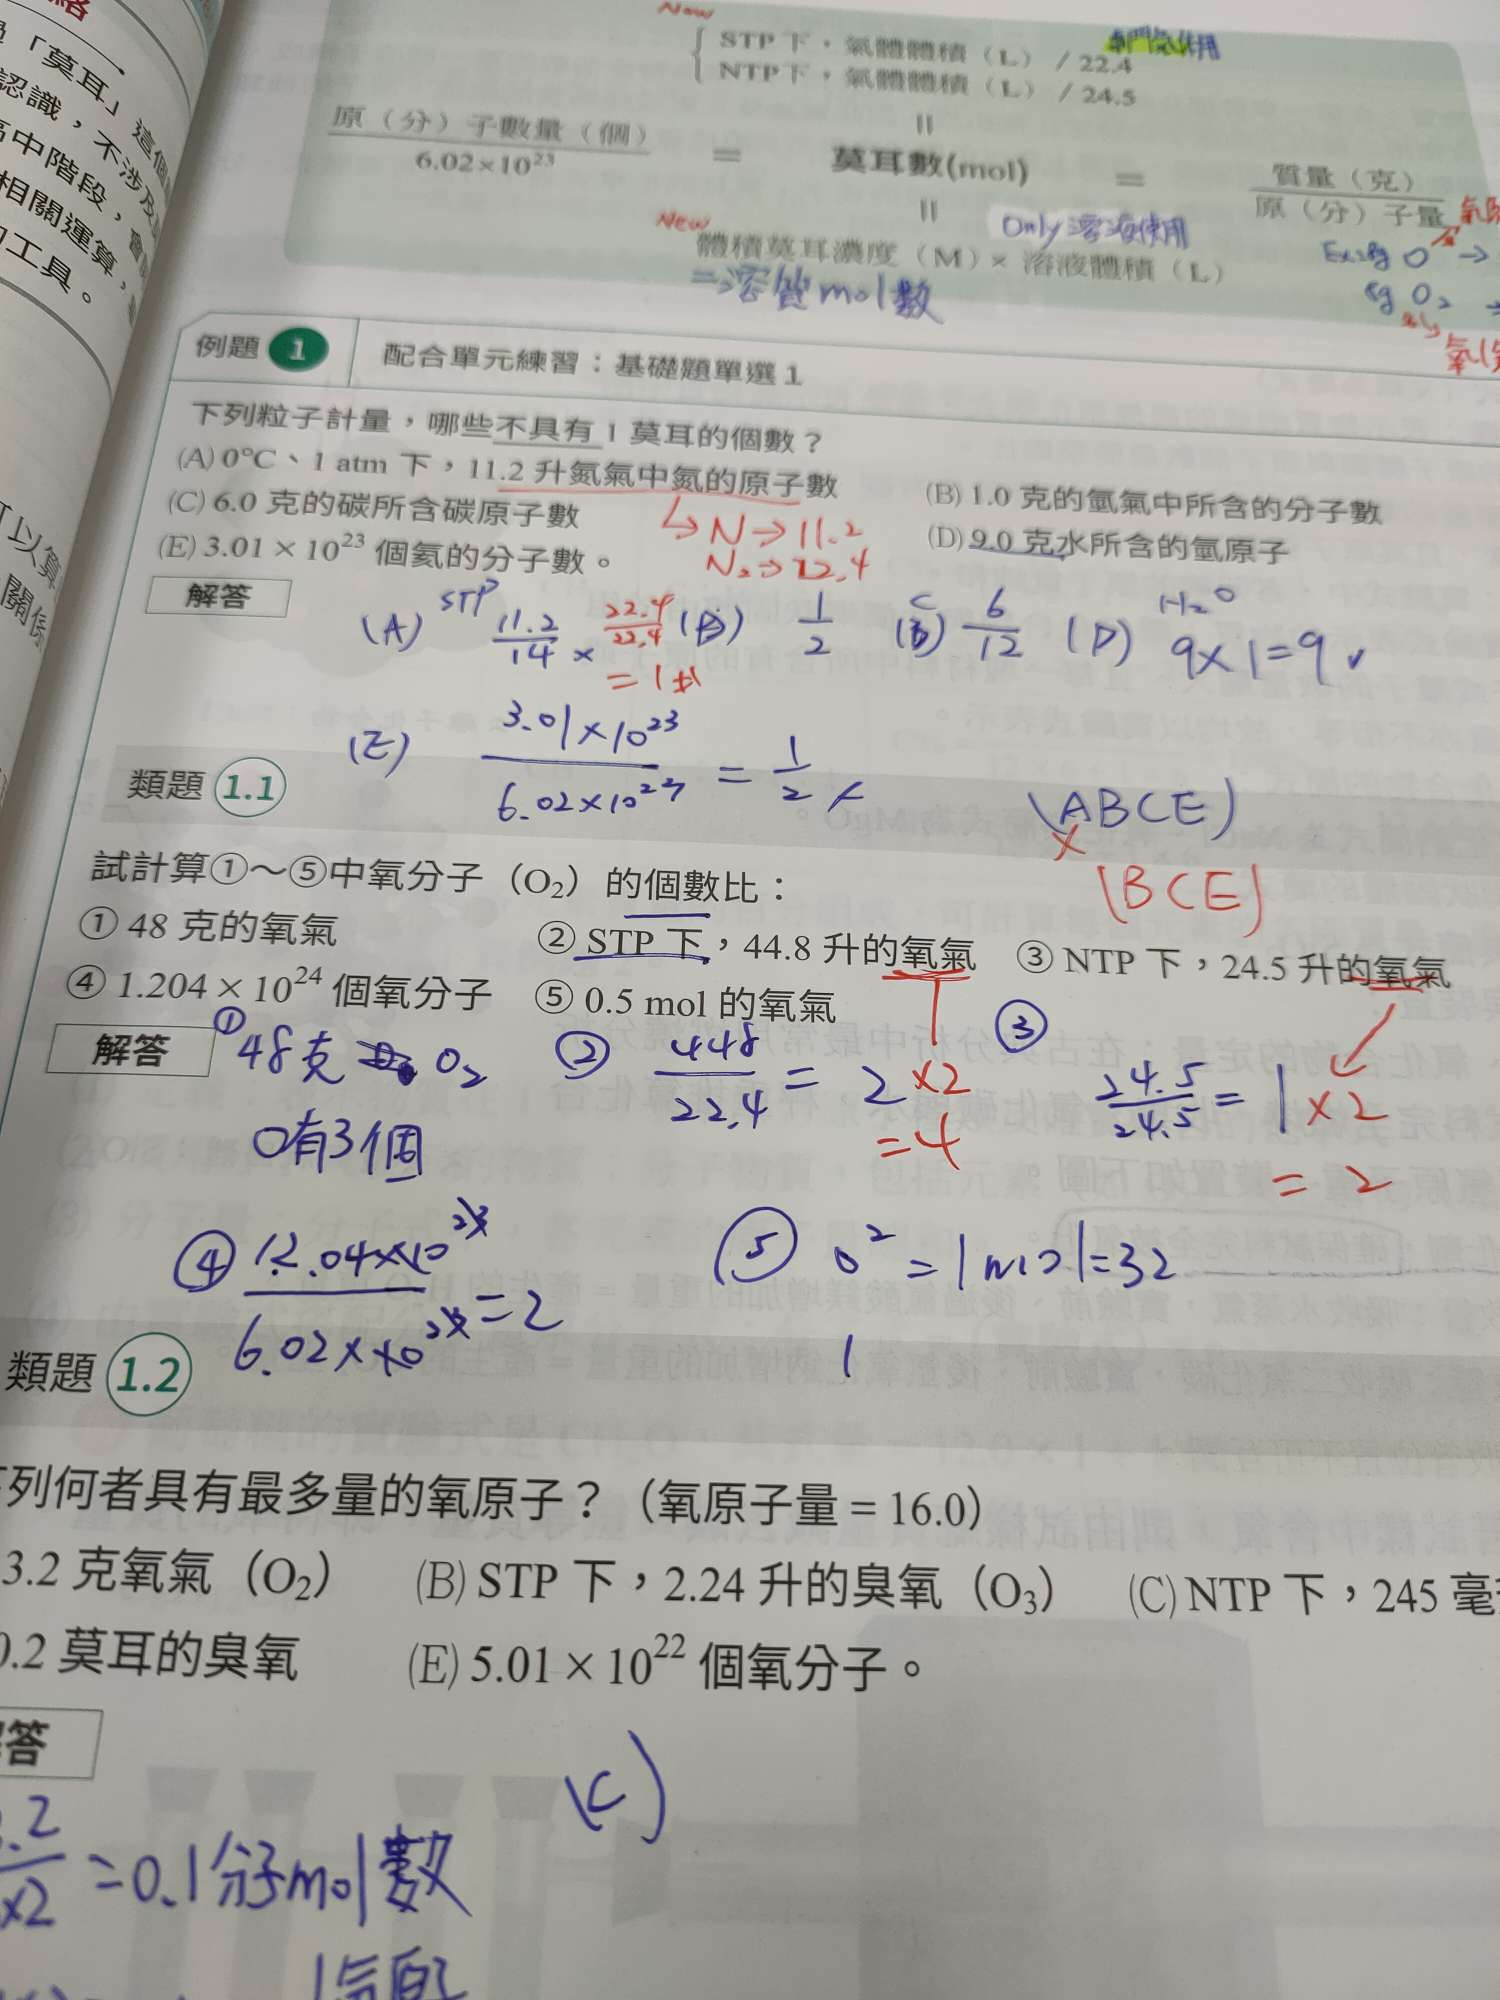 「莫耳」這個
認識，不涉及
高中階段，會
相關運算，
工具。
可以算
關係
New
STP 下，氣體體積（L）/ 22.4
專門氣体用
NTP 下，氣體體積（L）/ 24.5
=
原（分）子數量（個）
6.02×10²³
=
莫耳數(mol)
=
質量（克）
原（分）子量
=
New
Only 溶液使用
體積莫耳濃度（M）× 溶液體積（L）
=溶質mol數
O →
8g O₂
例題 1
配合單元練習：基礎題單選 1
下列粒子計量，哪些不具有 1 莫耳的個數？
(A) 0°C、1 atm 下，11.2 升氮氣中氮的原子數
(B) 1.0 克的氫氣中所含的分子數
(C) 6.0 克的碳所含碳原子數
(D) 9.0 克水所含的氫原子
(E) 3.01 × 10²³ 個氦的分子數。
↳ N → 11.2
N₂ → 22.4
解答
(A) STP 11.2/14 × 22.4/22.4
= 1
(B) 1/2
C 6/12
(D) H₂O 9×1=9 ✓
(E) 3.01×10²³/6.02×10²³ = 1/2
(ABCE)
×
(BCE)
類題 1.1
試計算①～⑤中氧分子（O₂）的個數比：
① 48 克的氧氣
② STP 下，44.8 升的氧氣
③ NTP 下，24.5 升的氧氣
④ 1.204 × 10²⁴ 個氧分子
⑤ 0.5 mol 的氧氣
解答
① 48克 O₂
O有3個
② 448/22.4 = 2 ×2
= 4
③ 24.5/24.5 = 1 ×2
= 2
④ 12.04×10²³/6.02×10²³ = 2
⑤ O² = 1mol=32
1
類題 1.2
列何者具有最多量的氧原子？（氧原子量 = 16.0）
3.2 克氧氣（O₂）
(B) STP 下，2.24 升的臭氧（O₃）
(C) NTP 下，245 毫
0.2 莫耳的臭氧
(E) 5.01 × 10²² 個氧分子。
答
(C)
.2/×2 = 0.1分子mol數